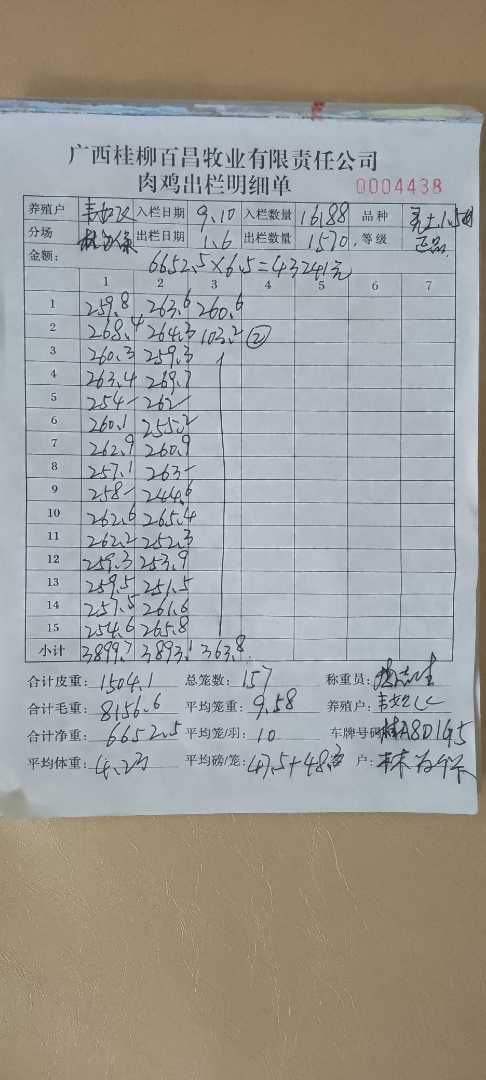 广西桂柳百昌牧业有限责任公司
肉鸡出栏明细单 0004438
养殖户 入栏日期 9.10 入栏数量 1688 品种
分场 出栏日期 1.6 出栏数量 1570. 等级 正品
金额: 6652.5×6.5=43241元
1 2 3 4 5 6 7
1 259.8 263.6 260.6
2 268.4 264.3 103.2 ②
3 260.3 259.3
4 263.4 269.7
5 254- 262-
6 260.1 255.2
7 262.9 260.9
8 257.1 263-
9 258- 244.6
10 262.6 265.4
11 262.2 252.3
12 259.3 253.9
13 259.5 251.5
14 257.5 261.6
15 254.6 265.8
小计 3899.7 3893.1 363.8
合计皮重: 1504.1 总笼数: 157 称重员:
合计毛重: 8156.6 平均笼重: 9.58 养殖户:
合计净重: 6652.5 平均笼/羽: 10 车牌号码 桂A8D1G5
平均体重: 4.23 平均磅/笼: 47.5+48 户: